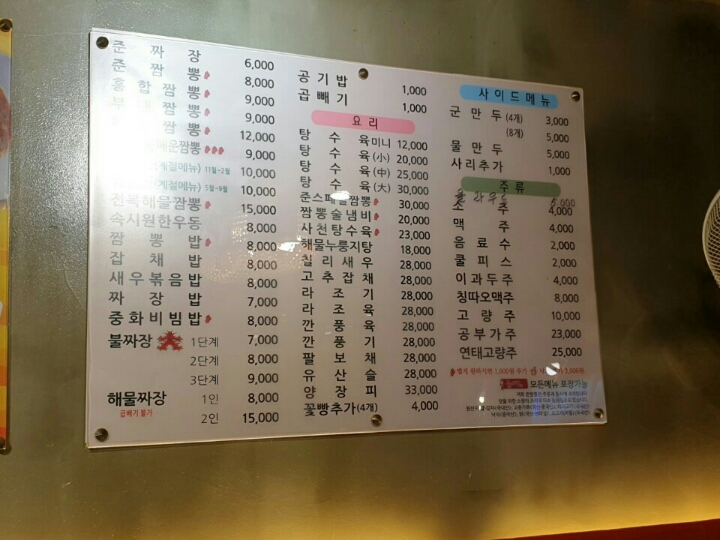 준 짜 장 6,000
준 짬 뽕 8,000
홍 합 짬 뽕 9,000
짬 뽕 9,000
짬 뽕 12,000
매운짬뽕 9,000
(계절메뉴) 11월~2월 10,000
(계절메뉴) 5월~9월 10,000
전복해물짬뽕 15,000
속시원한우동 8,000
짬 뽕 밥 8,000
잡 채 밥 8,000
새우볶음밥 8,000
짜 장 밥 7,000
중화비빔밥 8,000
불짜장 1단계 7,000
2단계 8,000
3단계 9,000
해물짜장 1인 8,000
곱빼기 불가
2인 15,000
공 기 밥 1,000
곱 빼 기 1,000
요 리
탕 수 육 미니 12,000
탕 수 육 (小) 20,000
탕 수 육 (中) 25,000
탕 수 육 (大) 30,000
준스페셜짬뽕 30,000
짬뽕술냄비 20,000
사천탕수육 23,000
해물누룽지탕 18,000
칠 리 새 우 28,000
고 추 잡 채 28,000
라 조 기 28,000
라 조 육 28,000
깐 풍 기 28,000
깐 풍 육 28,000
팔 보 채 28,000
유 산 슬 28,000
양 장 피 33,000
꽃빵추가(4개) 4,000
사이드메뉴
군 만 두 (4개) 3,000
(8개) 5,000
물 만 두 5,000
사리추가 1,000
주류
5,000
소 주 4,000
맥 주 4,000
음 료 수 2,000
쿨 피 스 2,000
이과두주 4,000
칭따오맥주 8,000
고 량 주 10,000
공부가주 23,000
연태고량주 25,000
맵게 원하시면 1,000원 추가
모든메뉴 포장가능